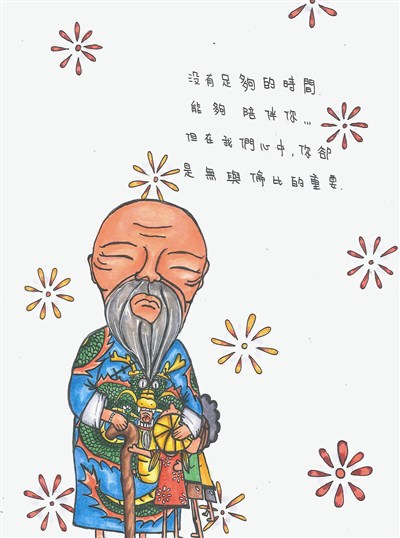 沒有足夠的時間
能夠陪伴你...
但在我們心中,你卻
是無與倫比的重要.